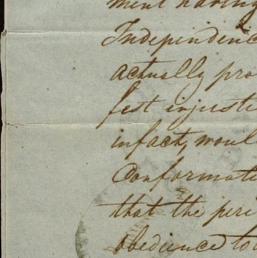 ment having
Independenc
actually pro
fest injusti
in fact, woul
Conformat
that the peri
obedience to